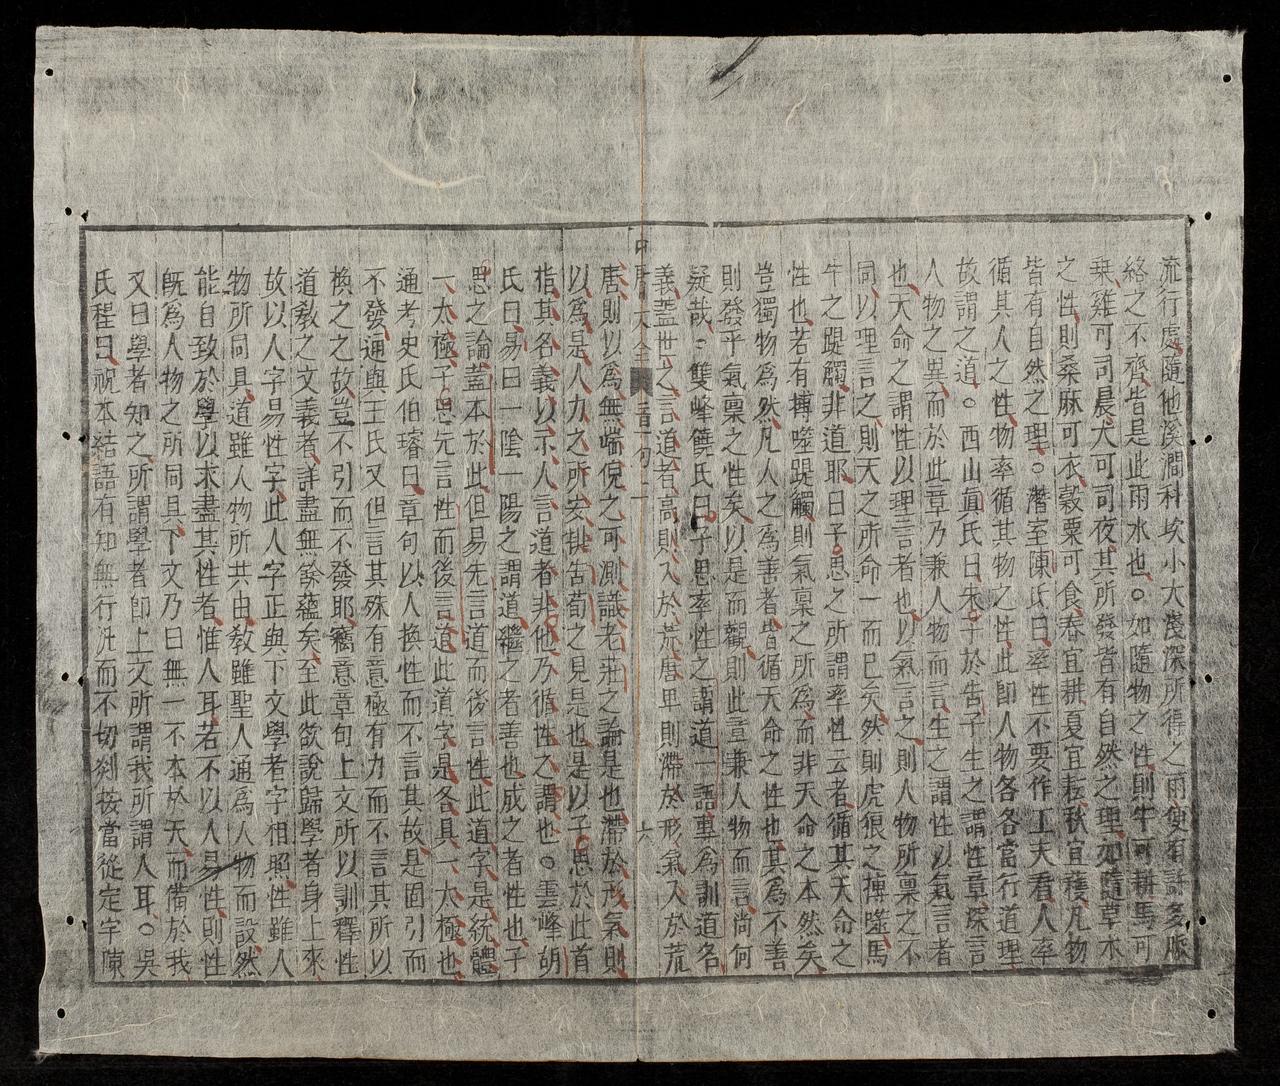 流行處隨他溪澗科坎小大淺深所得之雨便有許多脉
絡之不齊皆是此雨水也○如隨物之性則牛可耕馬可
乗雞可司晨犬可司夜其所發皆有自然之理如隨草木
之性則桑麻可衣穀粟可食春宜耕夏宜耘秋宜穫凡物
皆有自然之理○潛室陳氏曰率性不要作工夫看人率
循其人之性物率循其物之性此即人物各各當行道理
故謂之道○西山眞氏曰朱子於告子生之謂性章深言
人物之異而於此章乃兼人物而言生之謂性以氣言者
也天命之謂性以理言者也以氣言之則人物所稟之不
同以理言之則天之所命一而已矣然則虎狼之搏噬馬
牛之踶觸非道耶曰子思之所謂率性云者循其天命之
性也若有搏噬踶觸則氣稟之所為而非天命之本然矣
豈獨物爲然凡人之為善者皆循天命之性也其為不善
則發乎氣稟之性矣以是而觀則此章兼人物而言尚何
疑哉○雙峰饒氏曰子思率性之謂道一語專為訓道名
義蓋世之言道者高則入於荒唐卑則滯於形氣入於荒
中庸大全 章句 六
唐則以爲無端倪之可測識老莊之論是也滯於形氣則
以爲是人力之所安排告荀之見是也是以子思於此首
指其名義以示人言道者非他乃循性之謂也○雲峰胡
氏曰易曰一陰一陽之謂道繼之者善也成之者性也子
思之論蓋本於此但易先言道而後言性此道字是統體
一太極子思先言性而後言道此道字是各具一太極也
通考史氏伯璿曰章句以人換性而不言其故是固引而
不發通與王氏又但言其殊有意極有力而不言其所以
換之之故豈不引而不發耶竊意章句上文所以訓釋性
道教之文義者詳盡無餘蘊矣至此欲說歸學者身上來
故以人字易性字此人字正與下文學者字相照性雖人
物所同具道雖人物所共由教雖聖人通爲人物而設然
能自致於學以求盡其性者惟人耳若不以人易性則性
既爲人物之所同具下文乃曰無一不本於天而備於我
又曰學者知之所謂學者即上文所謂我所謂人耳○吳
氏程曰祝本結語有知無行汎而不切剡按當從定字陳